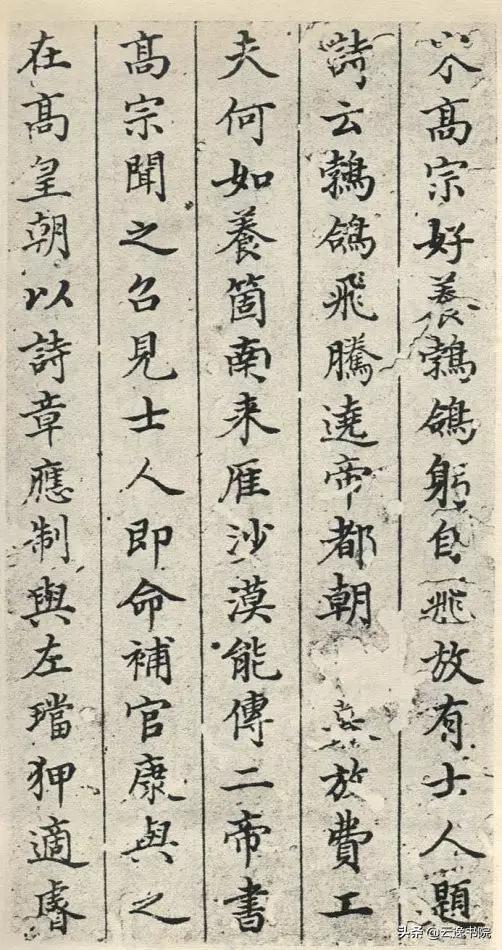 高宗好養鵓鴿躬自飛放有士人題
詩云鵓鴿飛騰遶帝都朝放費工
夫何如養箇南来雁沙漠能傳二帝書
高宗聞之召見士人即命補官康與之
在高皇朝以詩章應制與左璫狎適睿
头条 @云逸书院